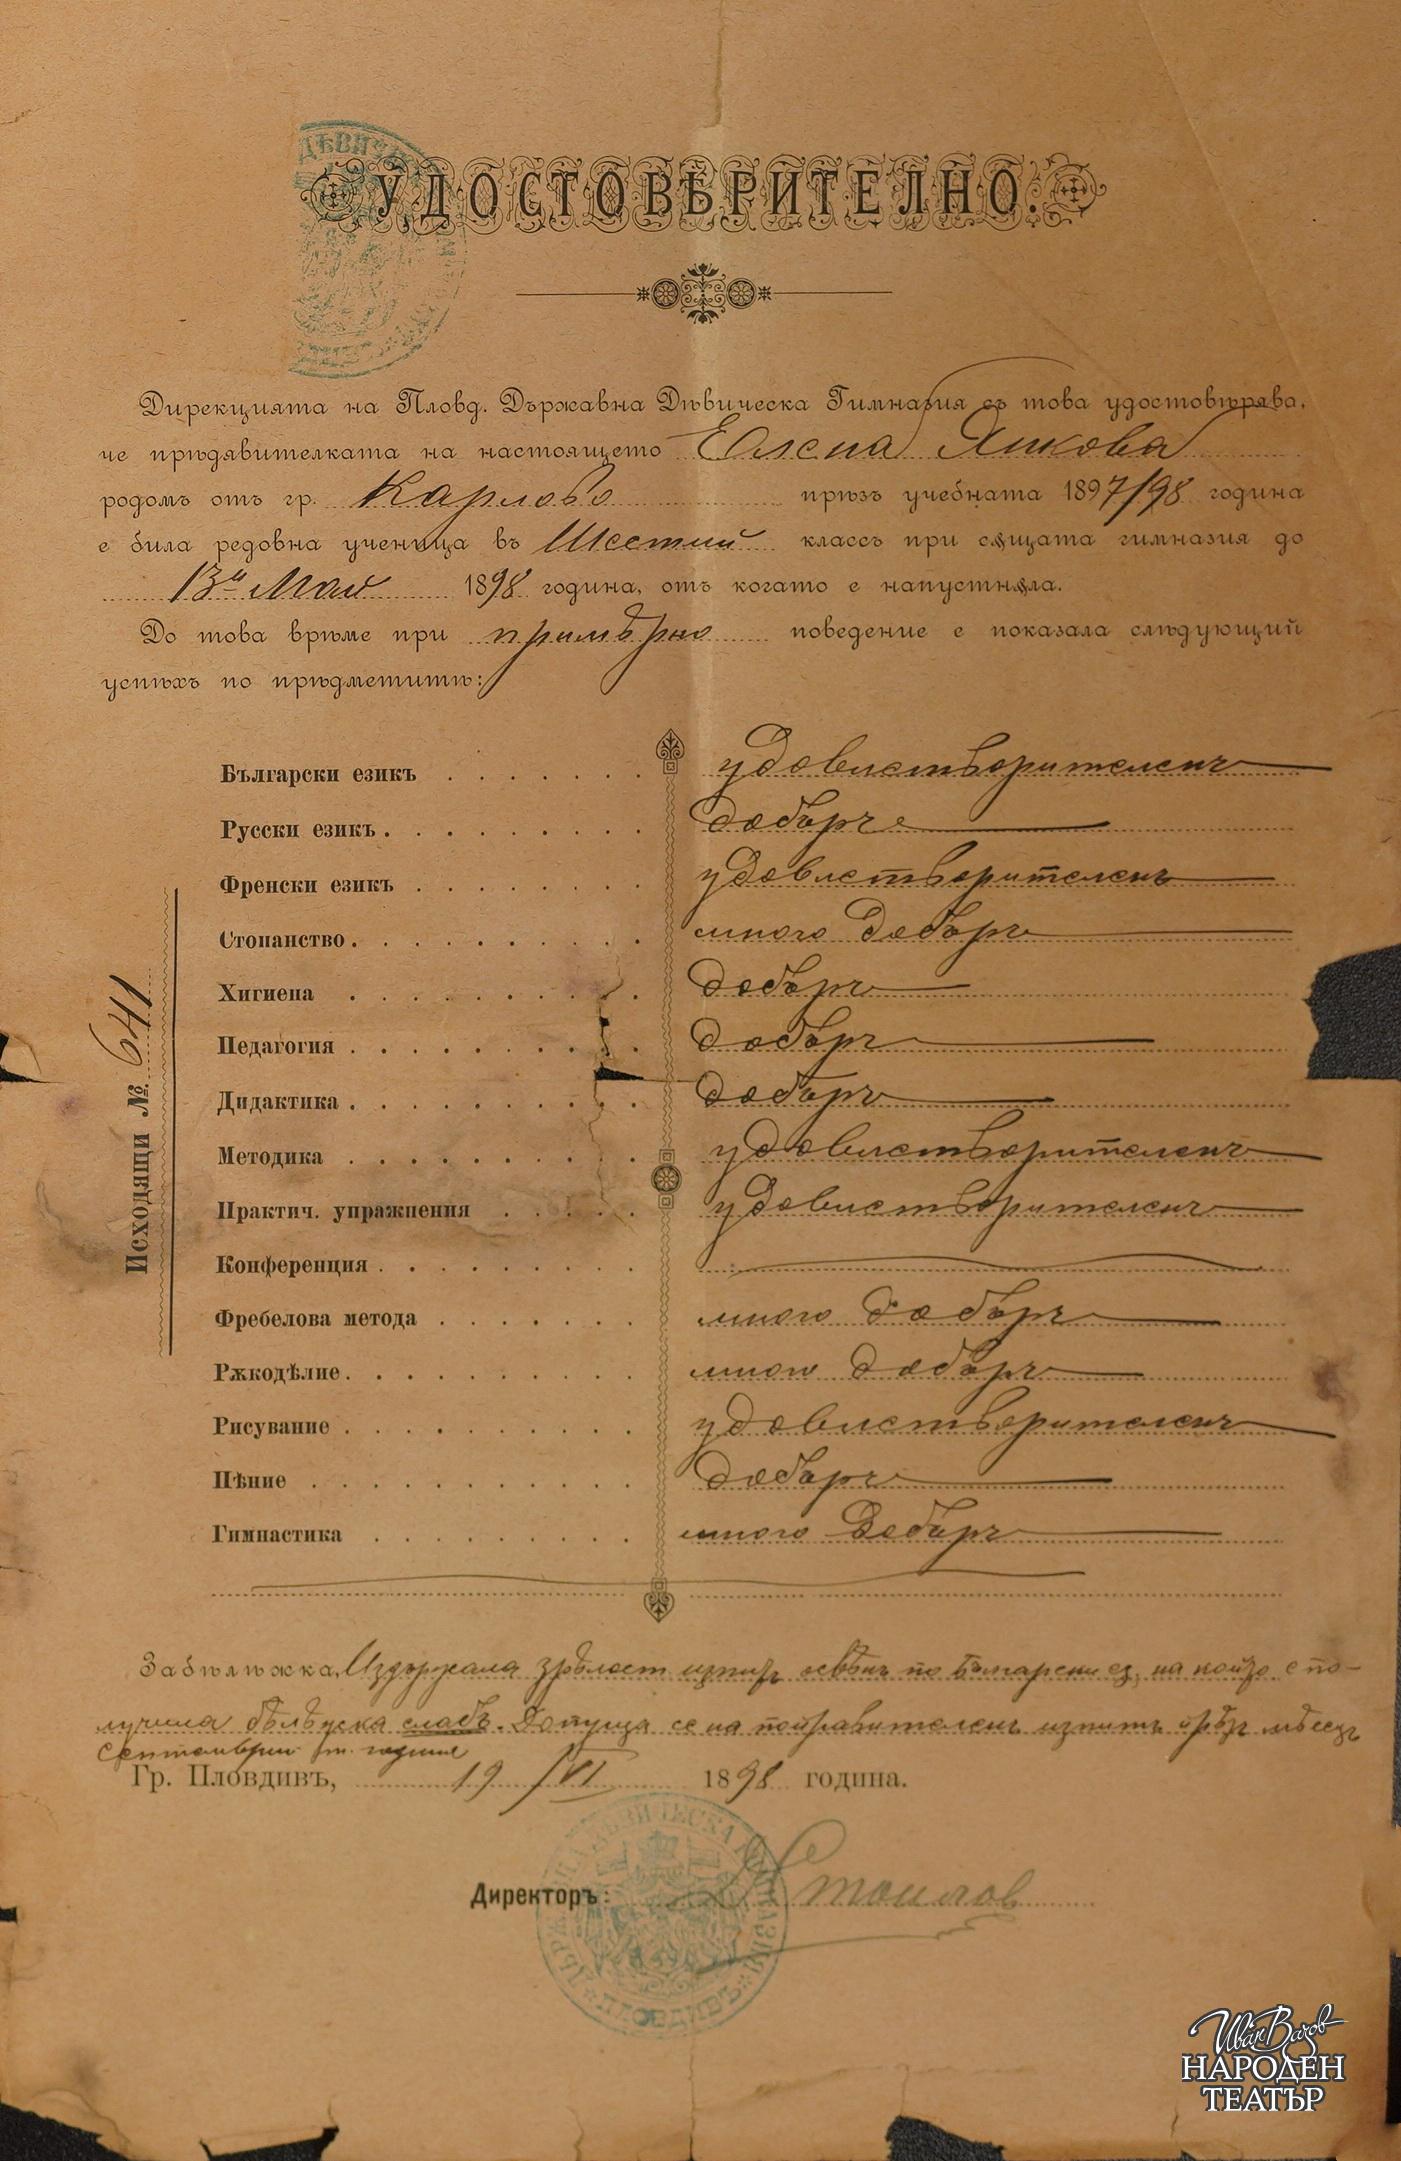 УДОСТОВѢРИТЕЛНО.
Дирекцията на Пловд. Държавна Дѣвическа Гимназия съ това удостовѣрява,
че прѣдявителката на настоящето Елена Янкова
родомъ отъ гр. Карлово прѣзъ учебната 1897/98 година
е била редовна ученица въ Шестий классъ при сѫщата гимназия до
13й Май 1898 година, отъ когато е напустнѫла.
До това врѣме при примѣрно поведение е показала слѣдующий
успѣхъ по прѣдметитѣ:
Български езикъ удовлетворителенъ
Русски езикъ добъръ
Френски езикъ удовлетворителенъ
Стопанство много добъръ
Хигиена добъръ
Педагогия добъръ
Дидактика добъръ
Методика удовлетворителенъ
Практич. упражнения удовлетворителенъ
Конференция
Фребелова метода много добъръ
Рѫкодѣлие много добъръ
Рисувание удовлетворителенъ
Пѣние добъръ
Гимнастика много добъръ
Исходящи №. 641
Забѣлѣжка, Издържала зрѣлост изпит освѣнъ по Български ез. на който е по-
лучила бѣлѣжка слабъ. Допуща се на поправителенъ изпитъ прѣз мѣсецъ
Септемврий т. година
Гр. Пловдивъ, 19/VI 1898 година.
Директоръ: Стоилов
ПЛОВДИВЪ
Иван Вазов
НАРОДЕН
ТЕАТЪР